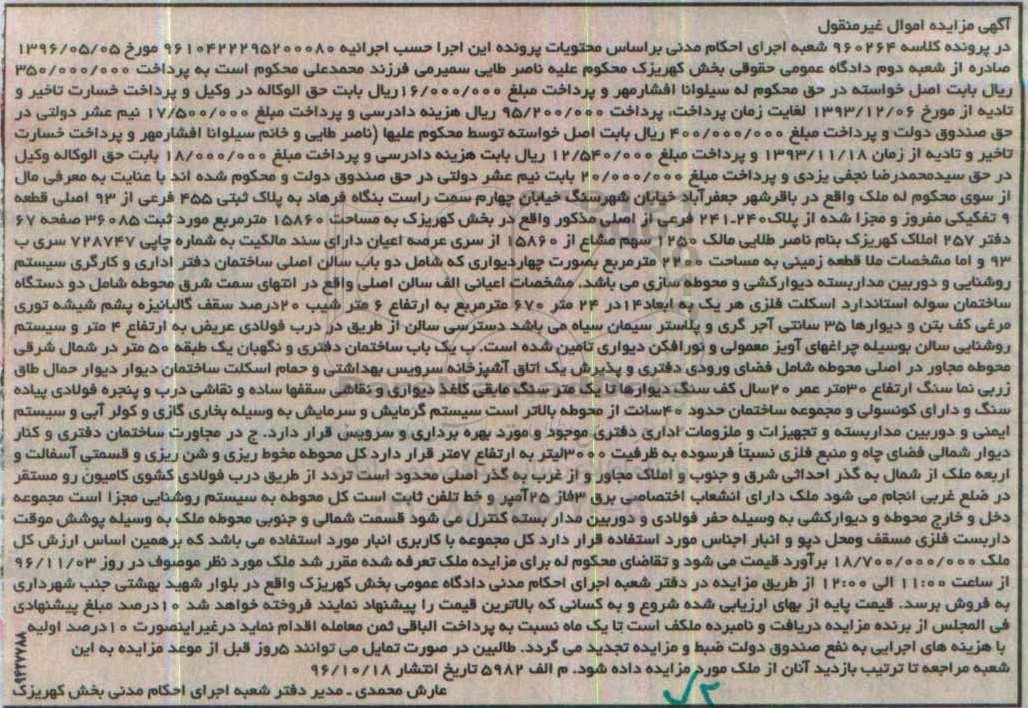 آگهی مزایده اموال غیرمنقول
در پرونده کلاسه ۹۶۰۲۶۴ شعبه اجرای احکام مدنی براساس محتویات پرونده این اجرا حسب اجرائیه ۹۶۱۰۴۲۲۲۹۵۲۰۰۰۸۰ مورخ ۱۳۹۶/۰۵/۰۵
صادره از شعبه دوم دادگاه عمومی حقوقی بخش کهریزک محکوم علیه ناصر طایی سمیرمی فرزند محمدعلی محکوم است به پرداخت ۳۵۰/۰۰۰/۰۰۰
ریال بابت اصل خواسته در حق محکوم له سیلوانا افشارمهر و پرداخت مبلغ ۱۶/۰۰۰/۰۰۰ریال بابت حق الوکاله در وکیل و پرداخت خسارت تاخیر و
تادیه از مورخ ۱۳۹۳/۱۲/۰۶ لغایت زمان پرداخت، پرداخت ۹۵/۲۰۰/۰۰۰ ریال هزینه دادرسی و پرداخت مبلغ ۱۷/۵۰۰/۰۰۰ نیم عشر دولتی در
حق صندوق دولت و پرداخت مبلغ ۴۰۰/۰۰۰/۰۰۰ ریال بابت اصل خواسته توسط محکوم علیها (ناصر طایی و خانم سیلوانا افشارمهر و پرداخت خسارت
تاخیر و تادیه از زمان ۱۳۹۳/۱۱/۱۸ و پرداخت مبلغ ۱۲/۵۴۰/۰۰۰ ریال بابت هزینه دادرسی و پرداخت مبلغ ۱۸/۰۰۰/۰۰۰ بابت حق الوکاله وکیل
در حق سیدمحمدرضا نجفی یزدی و پرداخت مبلغ ۲۰/۰۰۰/۰۰۰ بابت نیم عشر دولتی در حق صندوق دولت و محکوم شده اند با عنایت به معرفی مال
از سوی محکوم له ملک واقع در باقرشهر جعفرآباد خیابان شهرسنگ خیابان چهارم سمت راست بنگاه فرهاد به پلاک ثبتی ۴۵۵ فرعی از ۹۳ اصلی قطعه
۹ تفکیکی مفروز و مجزا شده از پلاک۲۴۰-۲۴۱ فرعی از اصلی مذکور واقع در بخش کهریزک به مساحت ۱۵۸۶۰ مترمربع مورد ثبت ۳۶۰۸۵ صفحه ۶۷
دفتر ۲۵۷ املاک کهریزک بنام ناصر طلایی مالک ۱۲۵۰ سهم مشاع از ۱۵۸۶۰ از سری عرصه اعیان دارای سند مالکیت به شماره چاپی ۷۲۸۷۴۷ سری ب
۹۳ و اما مشخصات ملا قطعه زمینی به مساحت ۲۲۰۰ مترمربع بصورت چهاردیواری که شامل دو باب سالن اصلی ساختمان دفتر اداری و کارگری سیستم
روشنایی و دوربین مداربسته دیوارکشی و محوطه سازی می باشد. مشخصات اعیانی الف سالن اصلی واقع در انتهای سمت شرق محوطه شامل دو دستگاه
ساختمان سوله استاندارد اسکلت فلزی هر یک به ابعاد۱۴در ۲۴ متر ۶۷۰ مترمربع به ارتفاع ۶ متر شیب ۲۰درصد سقف گالبانیزه پشم شیشه توری
مرغی کف بتن و دیوارها ۳۵ سانتی آجر گری و پلاستر سیمان سیاه می باشد دسترسی سالن از طریق در درب فولادی عریض به ارتفاع ۴ متر و سیستم
روشنایی سالن بوسیله چراغهای آویز معمولی و نورافکن دیواری تامین شده است. ب یک باب ساختمان دفتری و نگهبان یک طبقه ۵۰ متر در شمال شرقی
محوطه مجاور در اصلی محوطه شامل فضای ورودی دفتری و پذیرش یک اتاق آشپزخانه سرویس بهداشتی و حمام اسکلت ساختمان دیوار دیوار حمال طاق
زربی نما سنگ ارتفاع ۳۰متر عمر ۲۰سال کف سنگ دیوارها تا یک متر سنگ مابقی کاغذ دیواری و نقاشی سقفها ساده و نقاشی درب و پنجره فولادی پیاده
سنگ و دارای کونسولی و مجموعه ساختمان حدود ۴۰سانت از محوطه بالاتر است سیستم گرمایش و سرمایش به وسیله بخاری گازی و کولر آبی و سیستم
ایمنی و دوربین مداربسته و تجهیزات و ملزومات اداری دفتری موجود و مورد بهره برداری و سرویس قرار دارد. ج در مجاورت ساختمان دفتری و کنار
دیوار شمالی فضای چاه و منبع فلزی نسبتا فرسوده به ظرفیت ۳۰۰۰لیتر به ارتفاع ۷متر قرار دارد کل محوطه مخوط ریزی و شن ریزی و قسمتی آسفالت و
اربعه ملک از شمال به گذر احداثی شرق و جنوب و املاک مجاور و از غرب به گذر اصلی محدود است تردد از طریق درب فولادی کشوی کامیون رو مستقر
در ضلع غربی انجام می شود ملک دارای انشعاب اختصاصی برق ۳فاز ۲۵آمپر و خط تلفن ثابت است کل محوطه به سیستم روشنایی مجزا است مجموعه
دخل و خارج محوطه و دیوارکشی به وسیله حفر فولادی و دوربین مدار بسته کنترل می شود قسمت شمالی و جنوبی محوطه ملک به وسیله پوشش موقت
داربست فلزی مسقف ومحل دپو و انبار اجناس مورد استفاده قرار دارد کل مجموعه با کاربری انبار مورد استفاده می باشد که برهمین اساس ارزش کل
ملک ۱۸/۷۰۰/۰۰۰/۰۰۰ برآورد قیمت می شود و تقاضای محکوم له برای مزایده ملک تعرفه شده مقرر شد ملک مورد نظر موصوف در روز ۹۶/۱۱/۰۳
از ساعت ۱۱:۰۰ الی ۱۲:۰۰ از طریق مزایده در دفتر شعبه اجرای احکام مدنی دادگاه عمومی بخش کهریزک واقع در بلوار شهید بهشتی جنب شهرداری
به فروش برسد. قیمت پایه از بهای ارزیابی شده شروع و به کسانی که بالاترین قیمت را پیشنهاد نمایند فروخته خواهد شد ۱۰درصد مبلغ پیشنهادی
فی المجلس از برنده مزایده دریافت و نامبرده ملکف است تا یک ماه نسبت به پرداخت الباقی ثمن معامله اقدام نماید درغیراینصورت ۱۰درصد اولیه
با هزینه های اجرایی به نفع صندوق دولت ضبط و مزایده تجدید می گردد. طالبین در صورت تمایل می توانند ۵روز قبل از موعد مزایده به این
شعبه مراجعه تا ترتیب بازدید آنان از ملک مورد مزایده داده شود. م الف ۵۹۸۲ تاریخ انتشار ۹۶/۱۰/۱۸
عارش محمدی ـ مدیر دفتر شعبه اجرای احکام مدنی بخش کهریزک